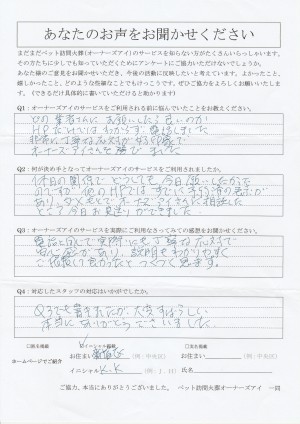 あなたのお声をお聞かせください
まだまだペット訪問火葬(オーナーズアイ)のサービスを知らない方がたくさんいらっしゃいます。
その方たちに少しでも知っていただくためにアンケートにご協力いただけないでしょうか。
あなた様のご意見をお聞かせいただき、今後の活動に反映したいと考えています。よかったこと、
嬉しかったこと、どのような些細なことでもけっこうです。ぜひご協力をよろしくお願いいたし
ます。(できるだけ具体的に書いていただけると助かります)
Q1:オーナーズアイのサービスをご利用される前に悩んでいたことをお教えください。
どの業者さんにお願いしたら良いのか
HPだけではわからず
オーナーズアイさんを選びました
Q2:何が決め手となってオーナーズアイのサービスをご利用されましたか。
休日の関係でどうしても今日お願いしたかった
あり、ダメもとでオーナーズアイさんに相談した
ところ今日お見送りができました
Q3:オーナーズアイのサービスを実際にご利用なさってみての感想をお聞かせください。
電話と同じで実際にも丁寧な応対で
安心感があり、説明もわかりやすく
ご依頼して良かったとつくづく思います。
Q4:対応したスタッフの対応はいかがでしたか。
Q3でも書きましたが、大変すばらしい
本当にありがとうございました。
□匿名掲載
イニシャル掲載
□実名掲載
ホームページでご紹介
お住まい
(例:中央区)
お住まい
(例:中央区)
イニシャル K.K (例:J.H)
氏名
ご協力、本当にありがとうございました。 ペット訪問火葬オーナーズアイ 一同